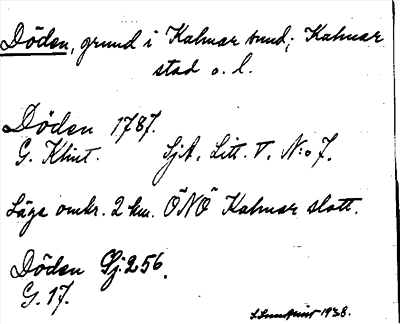 Döden, grund i Kalmar sund; Kalmar
stad o. l.
Döden 1787.
G. Klint. SjA. Litt. V. N:o 7.
Läge omkr. 2 km. ÖNÖ Kalmar slott.
Döden Sj. 256.
G. 17.
1938.